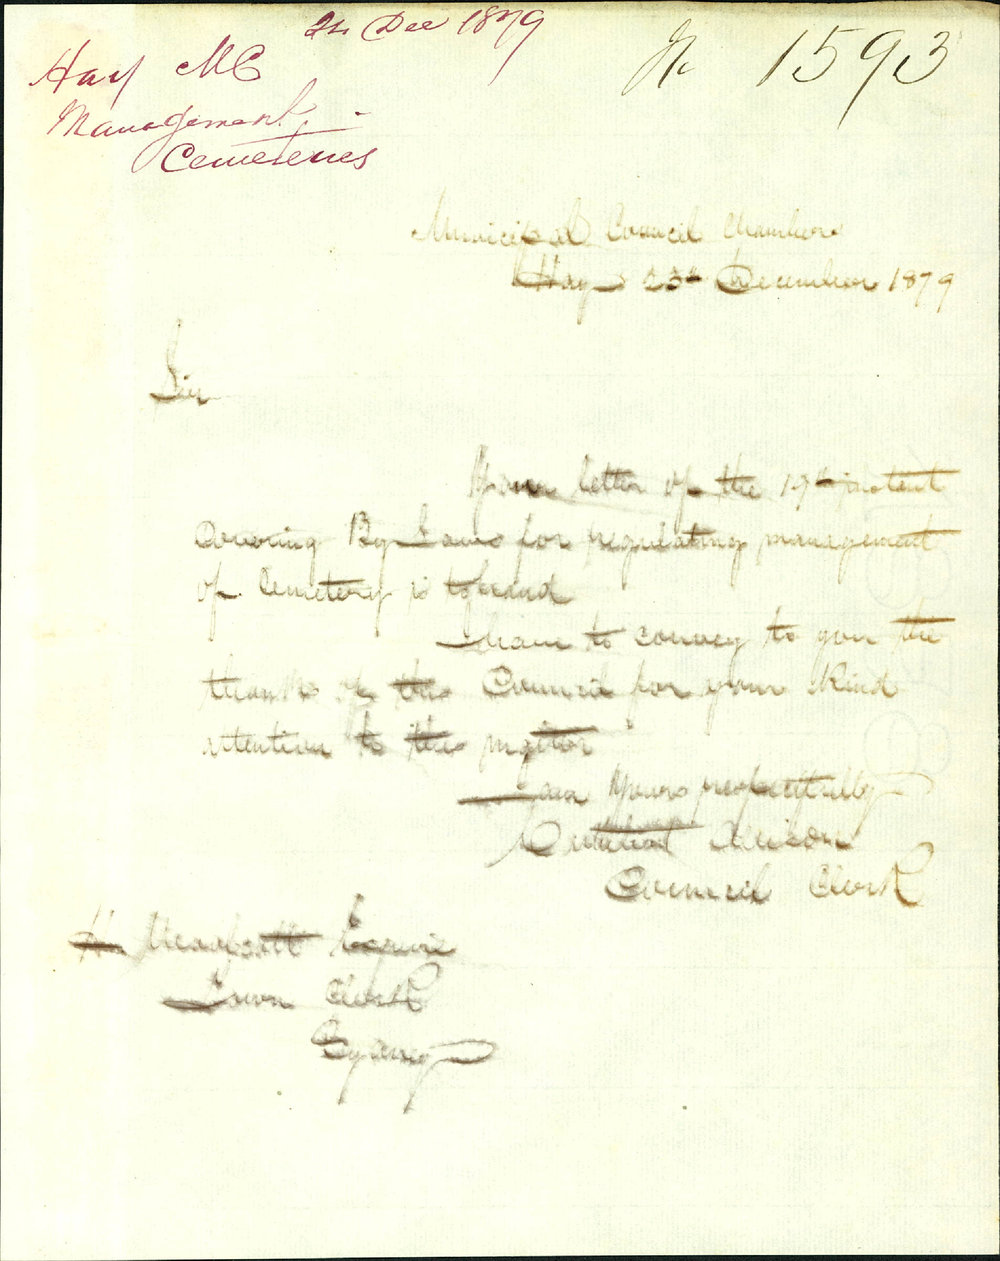 24 Dec 1879
No 1593
Hay MC
Management
Cemeteries
Municipal Council Chambers
Hay 23rd December 1879
Sir
Your letter of the 19th instant
covering By Laws for regulating management
of Cemetery is to hand
I have to convey to you the
thanks of the Council for your kind
attention to this matter
I am Yours respectfully
Council Clerk
H. Esquire
Town Clerk
Sydney